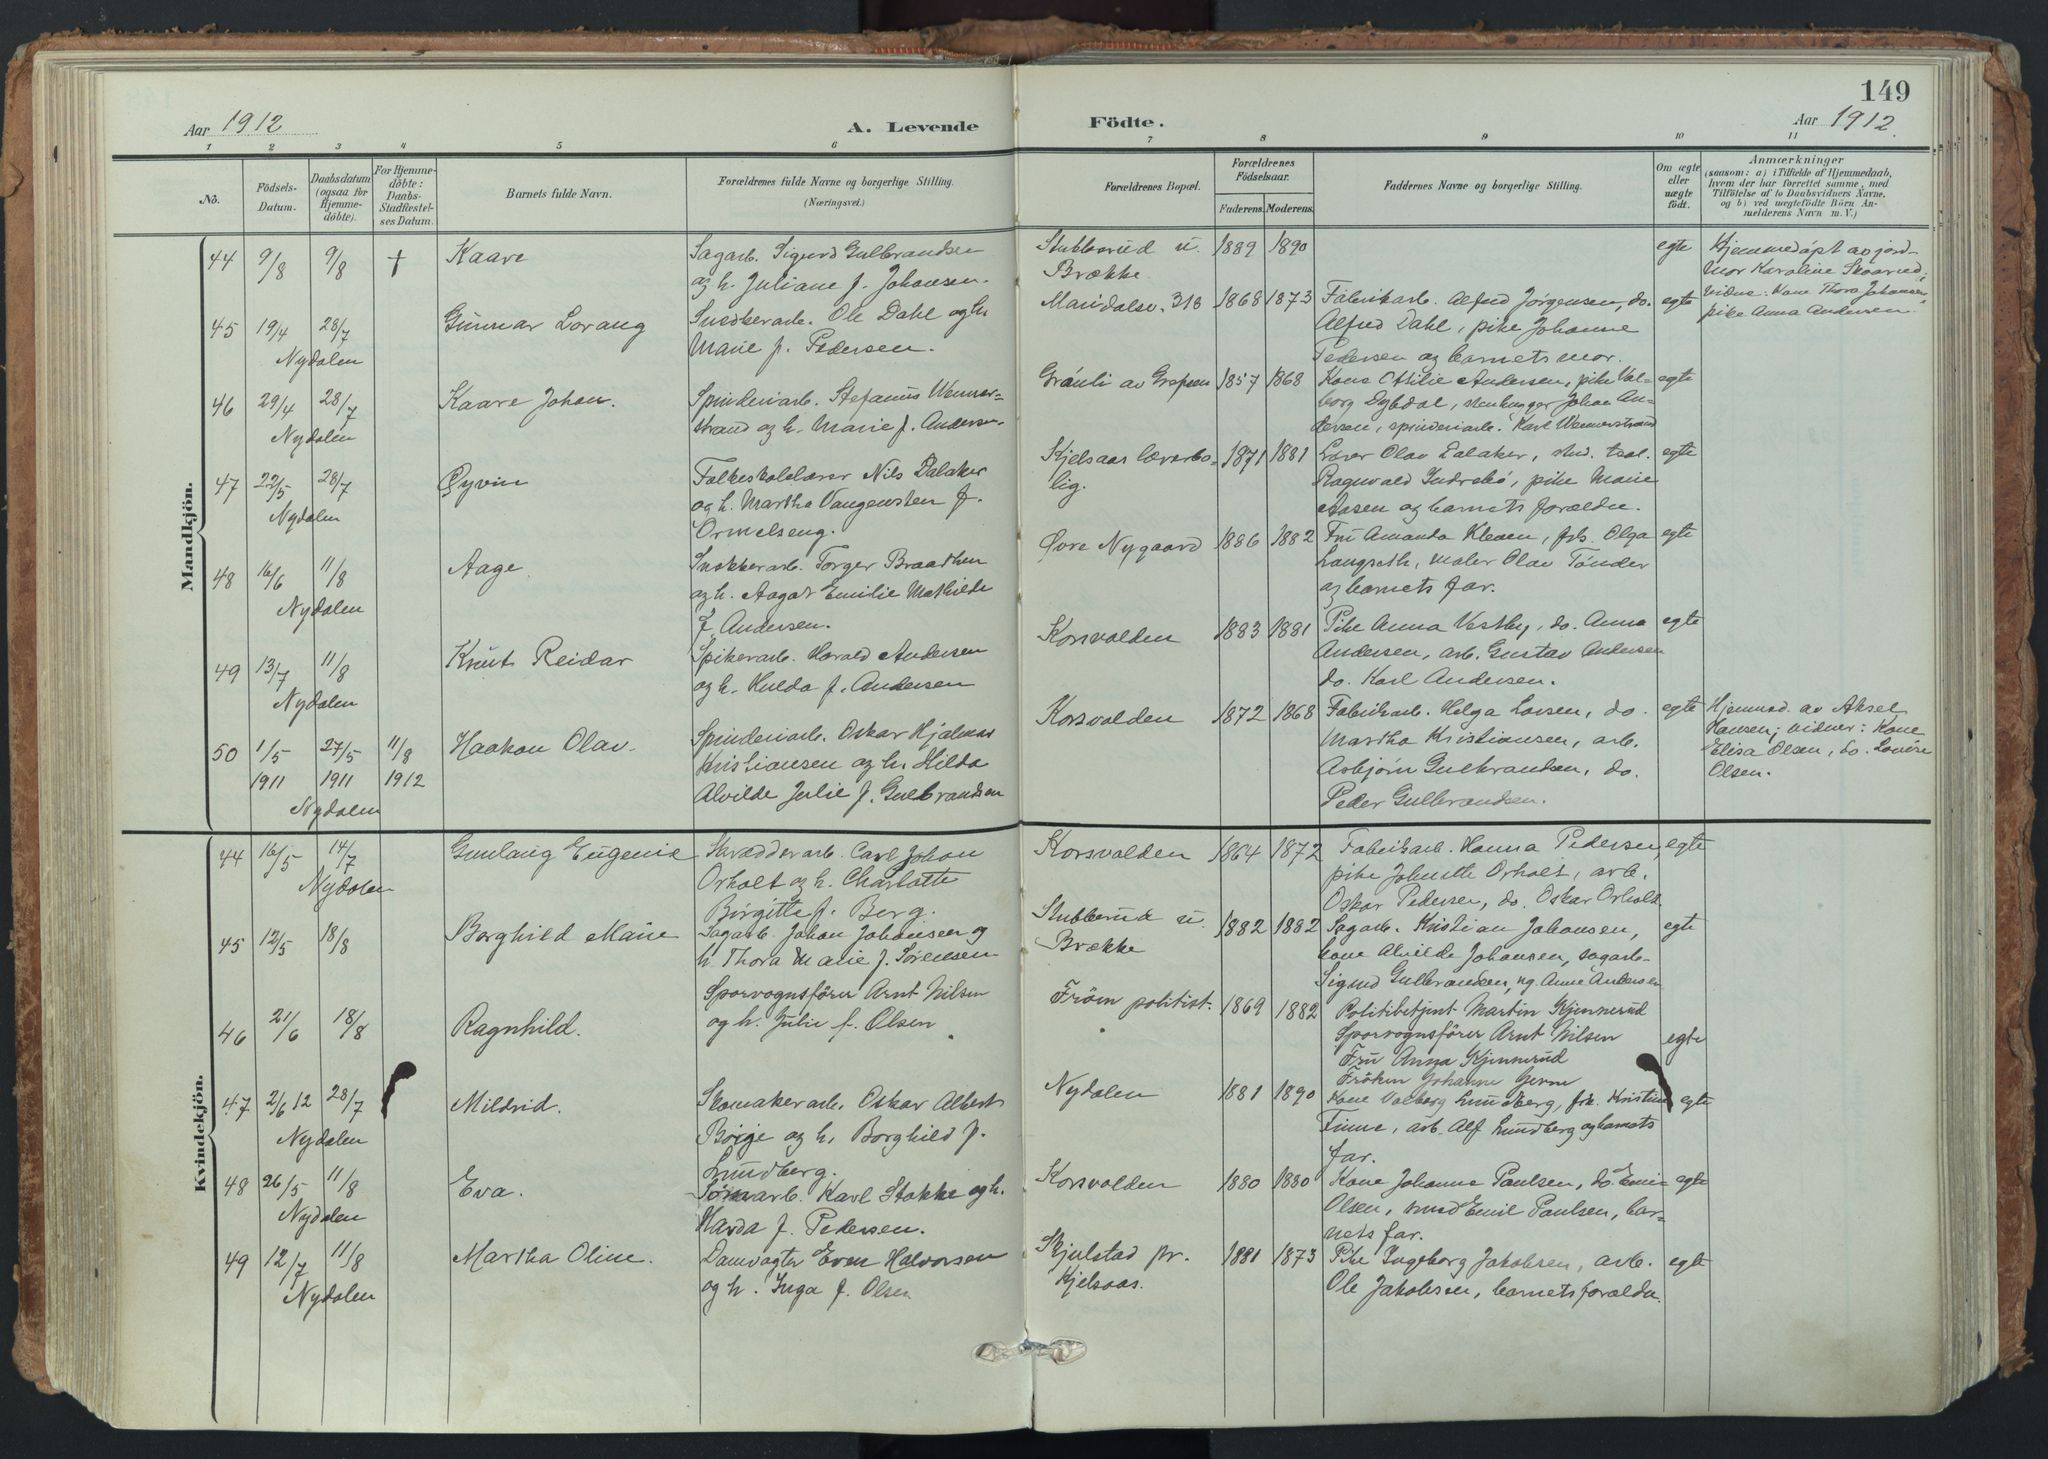 149
Aar 1912
A. Levende
Födte.
Aar 1912.
1 2 3 4 5 6 7 8 9 10 11
No.
Födsels-
Datum.
Daabsdatum
(ogsaa for
Hjemme-
döbte).
For Hjemme-
döbte:
Daabs-
Stadfæstel-
ses Datum.
Barnets fulde Navn.
Forældrenes fulde Navne og borgerlige Stilling.
(Næringsvei.)
Forældrenes Bopæl.
Forældrenes
Födselsaar.
Faderens. Moderens.
Faddernes Navne og borgerlige Stilling.
Om ægte
eller
uægte
födt.
Anmærkninger
(saasom: a) i Tilfælde af Hjemmedaab,
hvem der har forrettet samme, med
Tilföielse af to Daabsvidners Navne,
og b) ved uægtefödte Börn An-
melderens Navn m. V.)
Mandkjön.
44 9/8 9/8 † Kaare
Sagarb. Sigurd Gulbrandsen
og h. Juliane f. Johansen.
Stubberud u.
Brække.
1889 1890
egte
Hjemmedøpt av jord-
mor Karoline Skaarud;
vidne: Kone Thora Johansen,
pike Anna Andersen.
45 19/4 28/7 Gunnar Lorang
Nydalen
Snedkerarb. Ole Dahl og h.
Marie f. Pedersen.
Maridalsv. 318 1868 1873
Fabrikarb. Alfred Jørgensen, do.
Alfred Dahl, pike Johanne
Pedersen og barnets mor.
egte
46 29/4 28/7 Kaare Johan.
Nydalen
Spinderiarb. Stefanus Wenner-
strand og h. Marie f. Andersen.
Grönli av Grefsen 1857 1868
Kone Ottilie Andersen, pike Val-
borg Dybdal, stenhugger Johan An-
dersen, spinderiarb. Karl Wennerstrand
egte
47 22/5 28/7 Øyvin
Nydalen
Folkeskolelærer Nils Dalaker
og h. Martha Vangensten f.
Ormelseng.
Kjelsaas lærerbo-
lig.
1871 1881
Lærer Olav Dalaker, stud. teol.
Ragnvald Indrebö, pike Marie
Aasen og barnets foræld​re.
egte
48 16/6 11/8 Aage.
Nydalen
Snekkerarb. Torger Braathen
og h. Aagot Emilie Mathilde
f. Andersen.
Øvre Nygaard 1886 1882
Fru Amanda Kleven, frk. Olga
Langseth, maler Olav Tønder
og barnets far.
egte
49 13/7 11/8 Knut Reidar
Nydalen
Spikerarb. Harald Andersen
og h. Hulda f. Andersen
Korsvolden 1883 1881
Pike Anna Vestby, do. Anna
Andersen, arb. Gustav Andersen
do. Karl Andersen.
egte
50 1/5 27/5 11/8 Haakon Olav.
1911 1911 1912
Nydalen
Spinderiarb. Oskar Hjalmar
Kristiansen og h. Hilda
Alvilde Julie f. Gulbrandsen
Korsvolden 1872 1868
Fabrikarb. Helga Larsen, do.
Martha Kristiansen, arb.
Asbjørn Gulbrandsen, do.
Peder Gulbrandsen.
egte
Hjemmed. av Aksel
Hansen; vidner: Kone
Elisa Olsen, do. Lovise
Olsen.
Kvindekjön.
44 16/5 14/7 Gunlaug Eugenie
Nydalen
Skrædderarb. Carl Johan
Orholt og h. Charlotte
Birgitte f. Berg.
Korsvolden 1864 1872
Fabrikarb. Hanna Pedersen,
pike Johnette Orholt, arb.
Oskar Pedersen, do. Oskar Orholt.
egte
45 12/5 18/8 Borghild Marie
Sagarb. Johan Johansen og
h. Thora Marie f. Sörensen
Stubberud u.
Brække
1882 1882
Sagarb. Kristian Johansen,
kone Alvilde Johansen, sagarb.
Sigurd Gulbrandsen, og Anne Andersen
egte
46 21/6 18/8 Ragnhild.
Sporvognsförer Arnt Nilsen
og h. Julie f. Olsen
Fröen politist. 1869 1882
Politibetjent Martin Kjennerud
Sporvognsförer Arnt Nilsen
Fru Anna Kjennerud
Fröken Johanne
egte
47 2/6 12 28/7 Mildrid.
Nydalen
Skomakerarb. Oskar Albert
Böige og h. Borghild f.
Lundberg.
Nydalen 1881 1890
Kone Valborg Lundberg, frk. Kristine
Finne, arb. Alf Lundberg og barnets
far.
egte
48 26/5 11/8 Eva.
Nydalen
Karl Stokke og h.
Harda f. Pedersen.
Korsvolden 1880 1880
Kone Johanne Paulsen, do. Emi-
Olsen, Emil Paulsen, bar-
nets far.
egte
49 12/7 11/8 Martha Oline.
Nydalen
Damvogter Even Halvorsen
og h. Inga f. Olsen
Skjulstad pr.
Kjelsaas.
1881 1873
Pike Ingeborg Jakobsen, arb.
Ole Jakobsen, barnets forældre.
egte